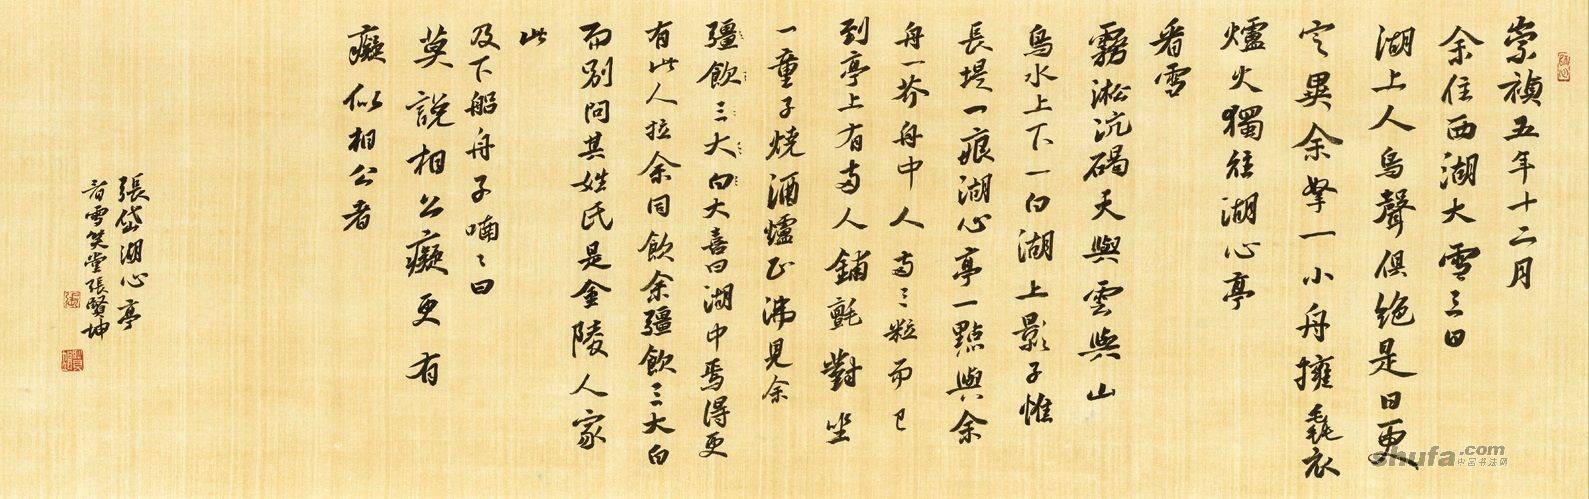 崇禎五年十二月
余住西湖大雪三日
湖上人鳥聲俱絕是日更
定異余拏一小舟擁毳衣
爐火獨往湖心亭
看雪
霧淞沆碭天與雲與山
鳥水上下一白湖上影子惟
長堤一痕湖心亭一點與余
舟一芥舟中人兩三粒而已
到亭上有兩人鋪氈對坐
一童子燒酒爐正沸見余
彊飲三大白大喜曰湖中焉得更
有此人拉余同飲余彊飲三大白
而別問其姓氏是金陵人家
此
及下船舟子喃〻曰
莫說相公癡更有
癡似相公者
張岱湖心亭
看雪笑堂張賢坤
shufa.com
中国书法网